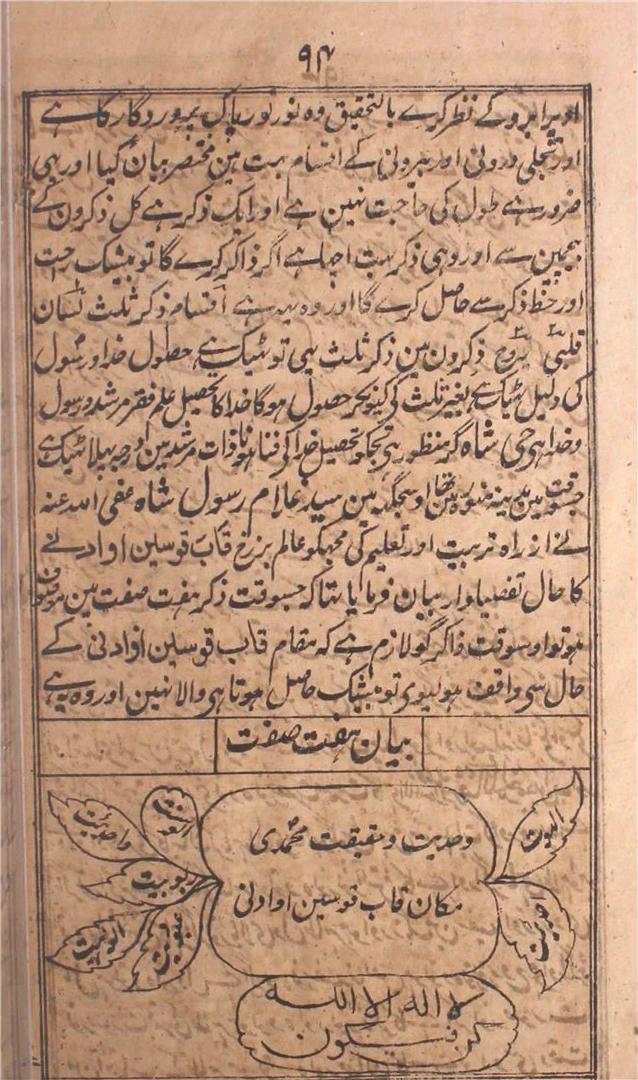 ۹۴
اوپر ابرو کے نظر کرے بالتحقیق وہ نور نور پاک پروردگار کا ہے
اور تجلی درونی اور بیرونی کے اقسام بہت ہین مختصر بیان کیا اور یہی
ضرور ہے طول کی حاجت نہین ہے اور ایک ذکر ہے کل ذکرون کے
بیچمین سے اور وہی ذکر بہت اچھا ہے اگر ذاکر کرے گا تو بیشک راحت
اور حظ ذکر سے حاصل کرے گا اور وہ یہہ ہے اقسام ذکر ثلث لسان
قلبی روح ذکرون مین ذکر ثلث یہی تو ٹھیک ہے حصول خدا و رسول
کی دلیل ٹھیک ہے بغیر ثلث کو کیونکر حصول ہوگا خدا کا تحصیل علم فقر مرشد و رسول
و خدا ہی جی شاہ گر منظور ہی تجکو تحصیل خدا کو فنا ہو ذات مرشد مین او پہلا ٹھیک ہے
جسوقت مین مدینہ منورہ مین تھا اوسجگہ مین سید غلام رسول شاہ عفی اللہ عنہ
نے از راہ تربیت اور تعلیم کی مجھکو عالم برزخ قاب قوسین او ادنے
کا حال تفصیلوار بیان فرمایا تھا کہ جسوقت ذکر ہفت صفت مین موصوف
ہو تو اوسوقت ذاکر کو لازم ہے کہ مقام قاب قوسین او ادنیٰ کے
حال سی واقف ہولیوی تو بیشک حاصل ہوتا ہی والا نہین اور وہ یہ ہے
بیان ہفت صفت
وحدیت و حقیقت محمدی
مکان قاب قوسین او ادنیٰ
واحدیت
ربوبیت
الوہیت
عبودیت
احدیت
لا الہ الا اللہ
کن فیکون